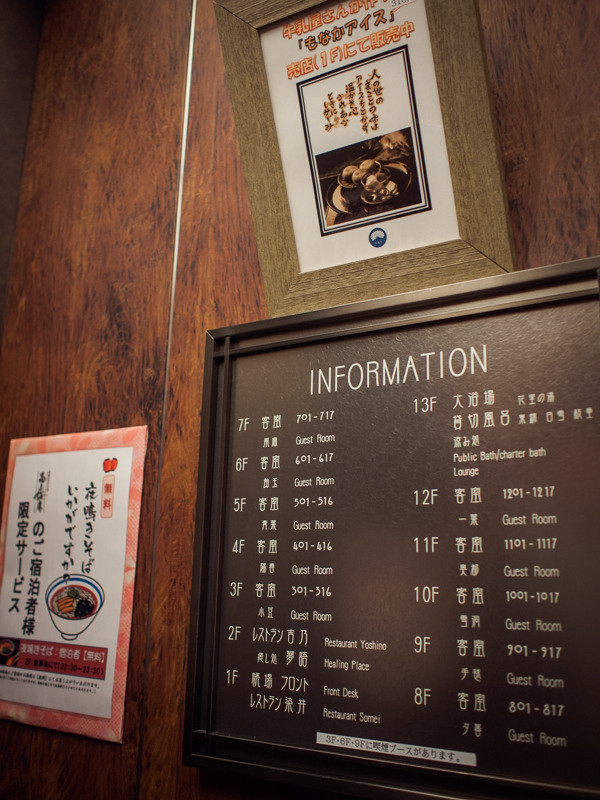 牛乳屋さんが作った
「もなかアイス」
売店(1F)にて販売中
INFORMATION
7F 客室 701-717
Guest Room
6F 客室 601-617
Guest Room
5F 客室 501-516
Guest Room
4F 客室 401-416
Guest Room
3F 客室 301-316
小豆 Guest Room
2F レストラン吉乃 Restaurant Yoshino
癒し処 夢語 Healing Place
1F 帳場 フロント Front Desk
レストラン染井 Restaurant Somei
13F 大浴場 花里の湯
貸切風呂
涼み処
Public Bath/charter bath
Lounge
12F 客室 1201-1217
一葉 Guest Room
11F 客室 1101-1117
Guest Room
10F 客室 1001-1017
Guest Room
9F 客室 901-917
Guest Room
8F 客室 801-817
Guest Room
3F・6F・9Fに喫煙ブースがあります。
無料
夜鳴きそば
いかがですか。
のご宿泊者様
限定サービス
夜鳴きそば：宿泊者【無料】